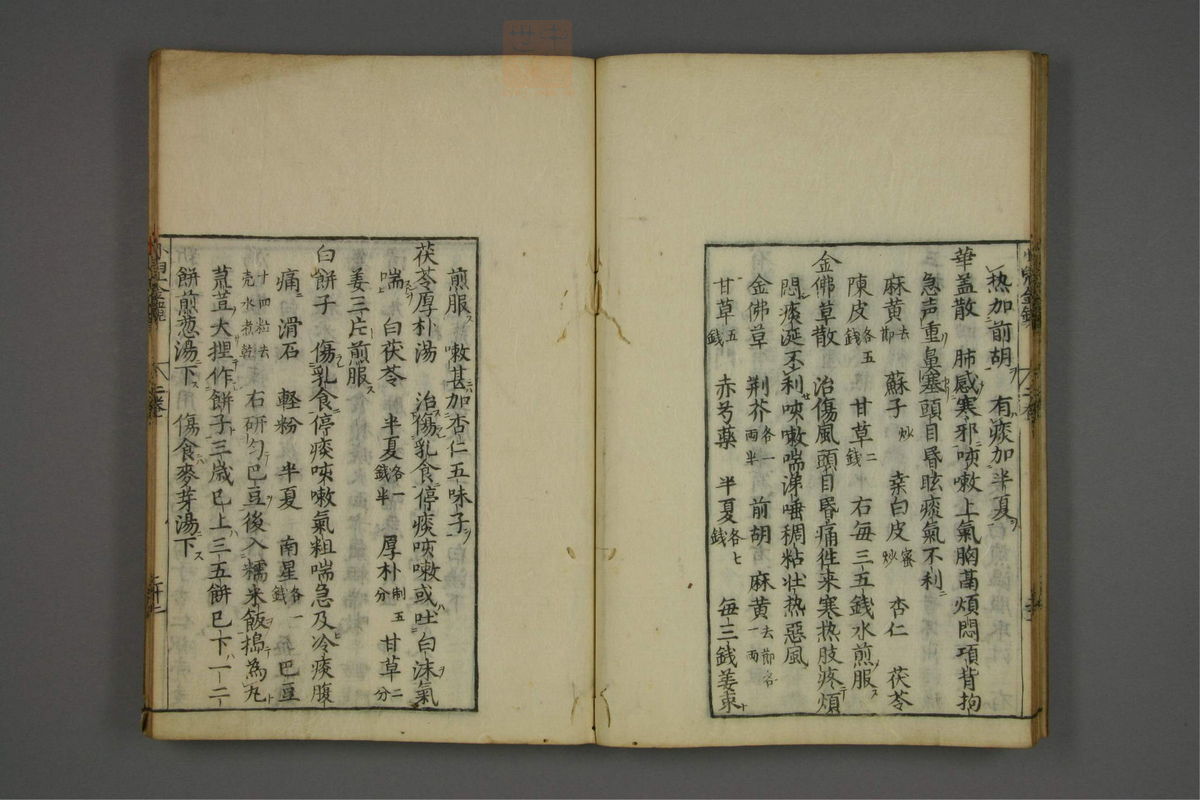 热加前胡 有痰加半夏
華盖散 肺感寒邪咳嗽上氣胸鬲煩悶項背拘
急声重鼻塞頭目昏眩痰氣不利
麻黄去節 蘇子炒 桒白皮蜜炒 杏仁 茯苓
陳皮各五錢 甘草二錢 右每三五錢水煎服
金佛草散 治傷風頭目昏痛徃来寒热肢疼煩
悶痰涎不利咳嗽喘涕唾稠粘壮热惡風
金佛草 荆芥各一兩半 前胡 麻黄去節各一兩
甘草五錢 赤芍藥 半夏各七錢 每三錢姜枣
煎服 嗽甚加杏仁五味子
茯苓厚朴湯 治傷乳食停痰咳嗽或吐白沫氣
喘 白茯苓 半夏各一錢半 厚朴制五分 甘草二分
姜三片煎服
白餅子 傷乳食停痰咳嗽氣粗喘急及冷痰腹
痛 滑石 軽粉 半夏 南星各一錢 巴豆
廿四粒去壳水煮乾 右研匀巴豆後入糯米飯搗為丸
菉荳大捏作餅子三歳已上三五餅已下一二
餅煎葱湯下 傷食麥芽湯下